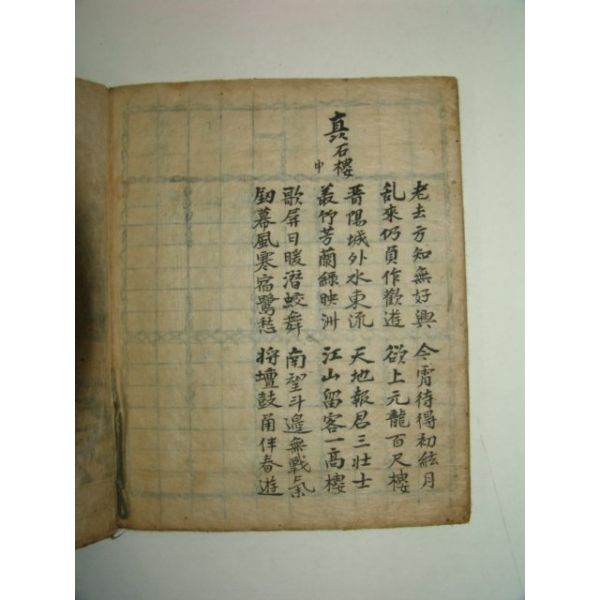 老去方知無好興 今宵待得初絃月
乱來仍負作歡遊 欲上元龍百尺樓
真石樓 申
晋陽城外水東流 天地報君三壮士
叢竹芳蘭緑映洲 江山留客一高樓
歌屏日暖潜蛟舞 南望斗邊無戰氣
釼幕風寒宿鷺愁 將壇鼓角伴春遊